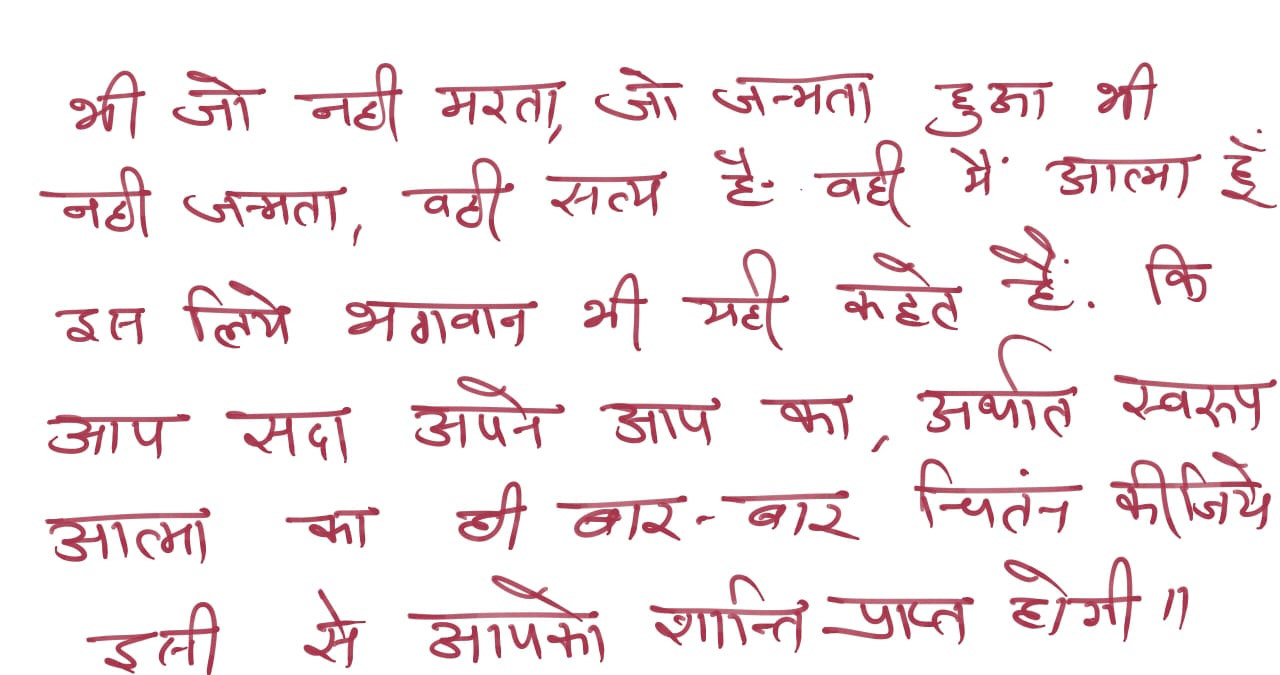 भी जो नही मरता, जो जन्मता हुआ भी
नही जन्मता, वही सत्य है. वही मैं आत्मा हूँ
इस लिये भगवान भी यही कहेत हैं. कि
आप सदा अपने आप का, अर्थात स्वरुप
आत्मा का ही बार-बार चितंन कीजिये
इसी से आपको शान्ति प्राप्त होगी ॥